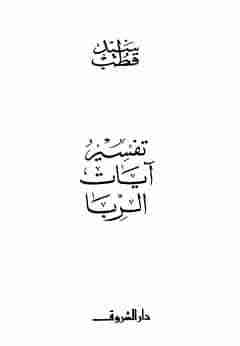 سيد
قطب
تفسير
آيات
الربا
دار الشروق